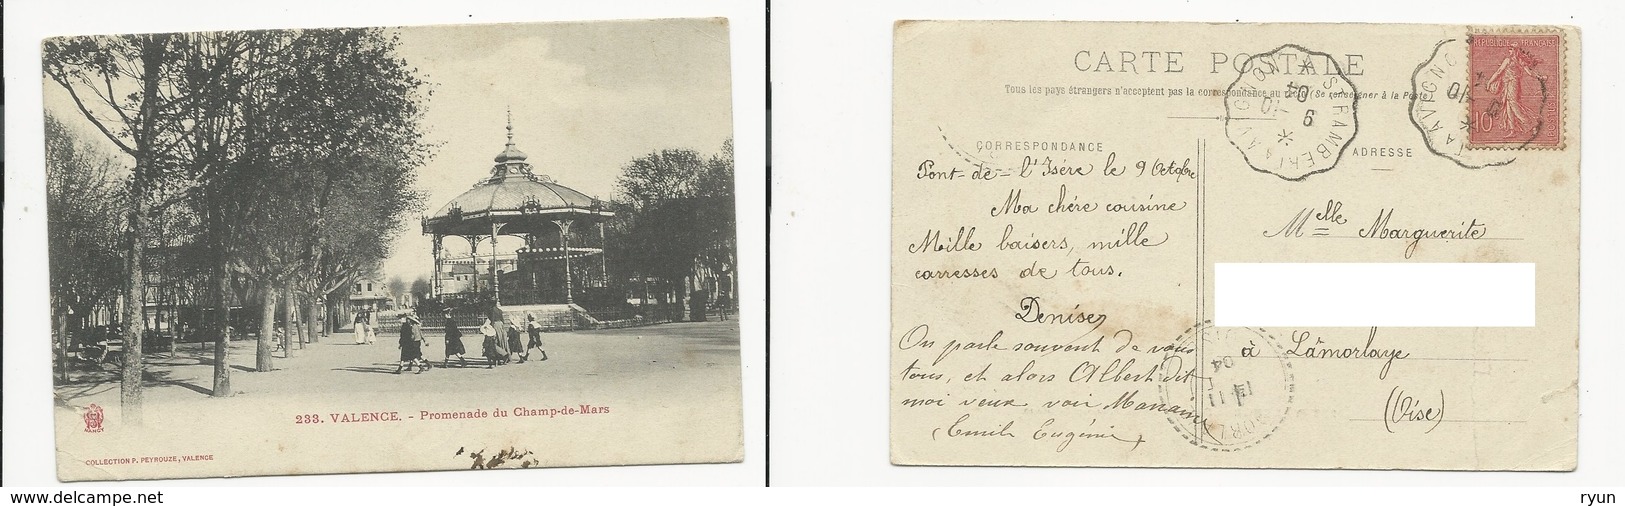 233. VALENCE. - Promenade du Champ-de-Mars
NANCY
COLLECTION P. PEYROUZE, VALENCE
CARTE POSTALE
Tous les pays étrangers n'acceptent pas la correspondance au recto (Se renseigner à la Poste)
CORRESPONDANCE
Pont-de-l'Isère le 9 Octobre
Ma chère cousine
Mille baisers, mille
carresses de tous.
Denise
On parle souvent de vous
tous, et alors Albert dit
moi veux voir Maname
Emile Eugénie
ADRESSE
Melle Marguerite
à Lamorlaye
(Oise)
REPUBLIQUE FRANÇAISE
10
St RAMBERT A AVIGNON
9
-10
04
T A AVIGNON
-10
11
04
MORL
www.delcampe.net
ryun